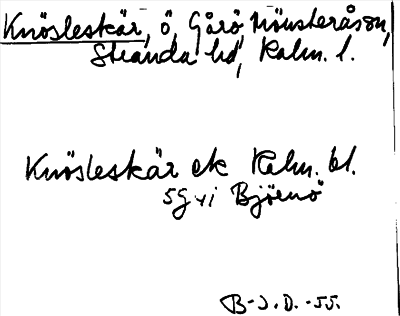 Knösleskär, ö, Gårö, Mönsterås sn,
Stranda hd, Kalm. l.
Knösleskär ek Kalm. bl.
5g vi Björnö
B-J.D.-55.